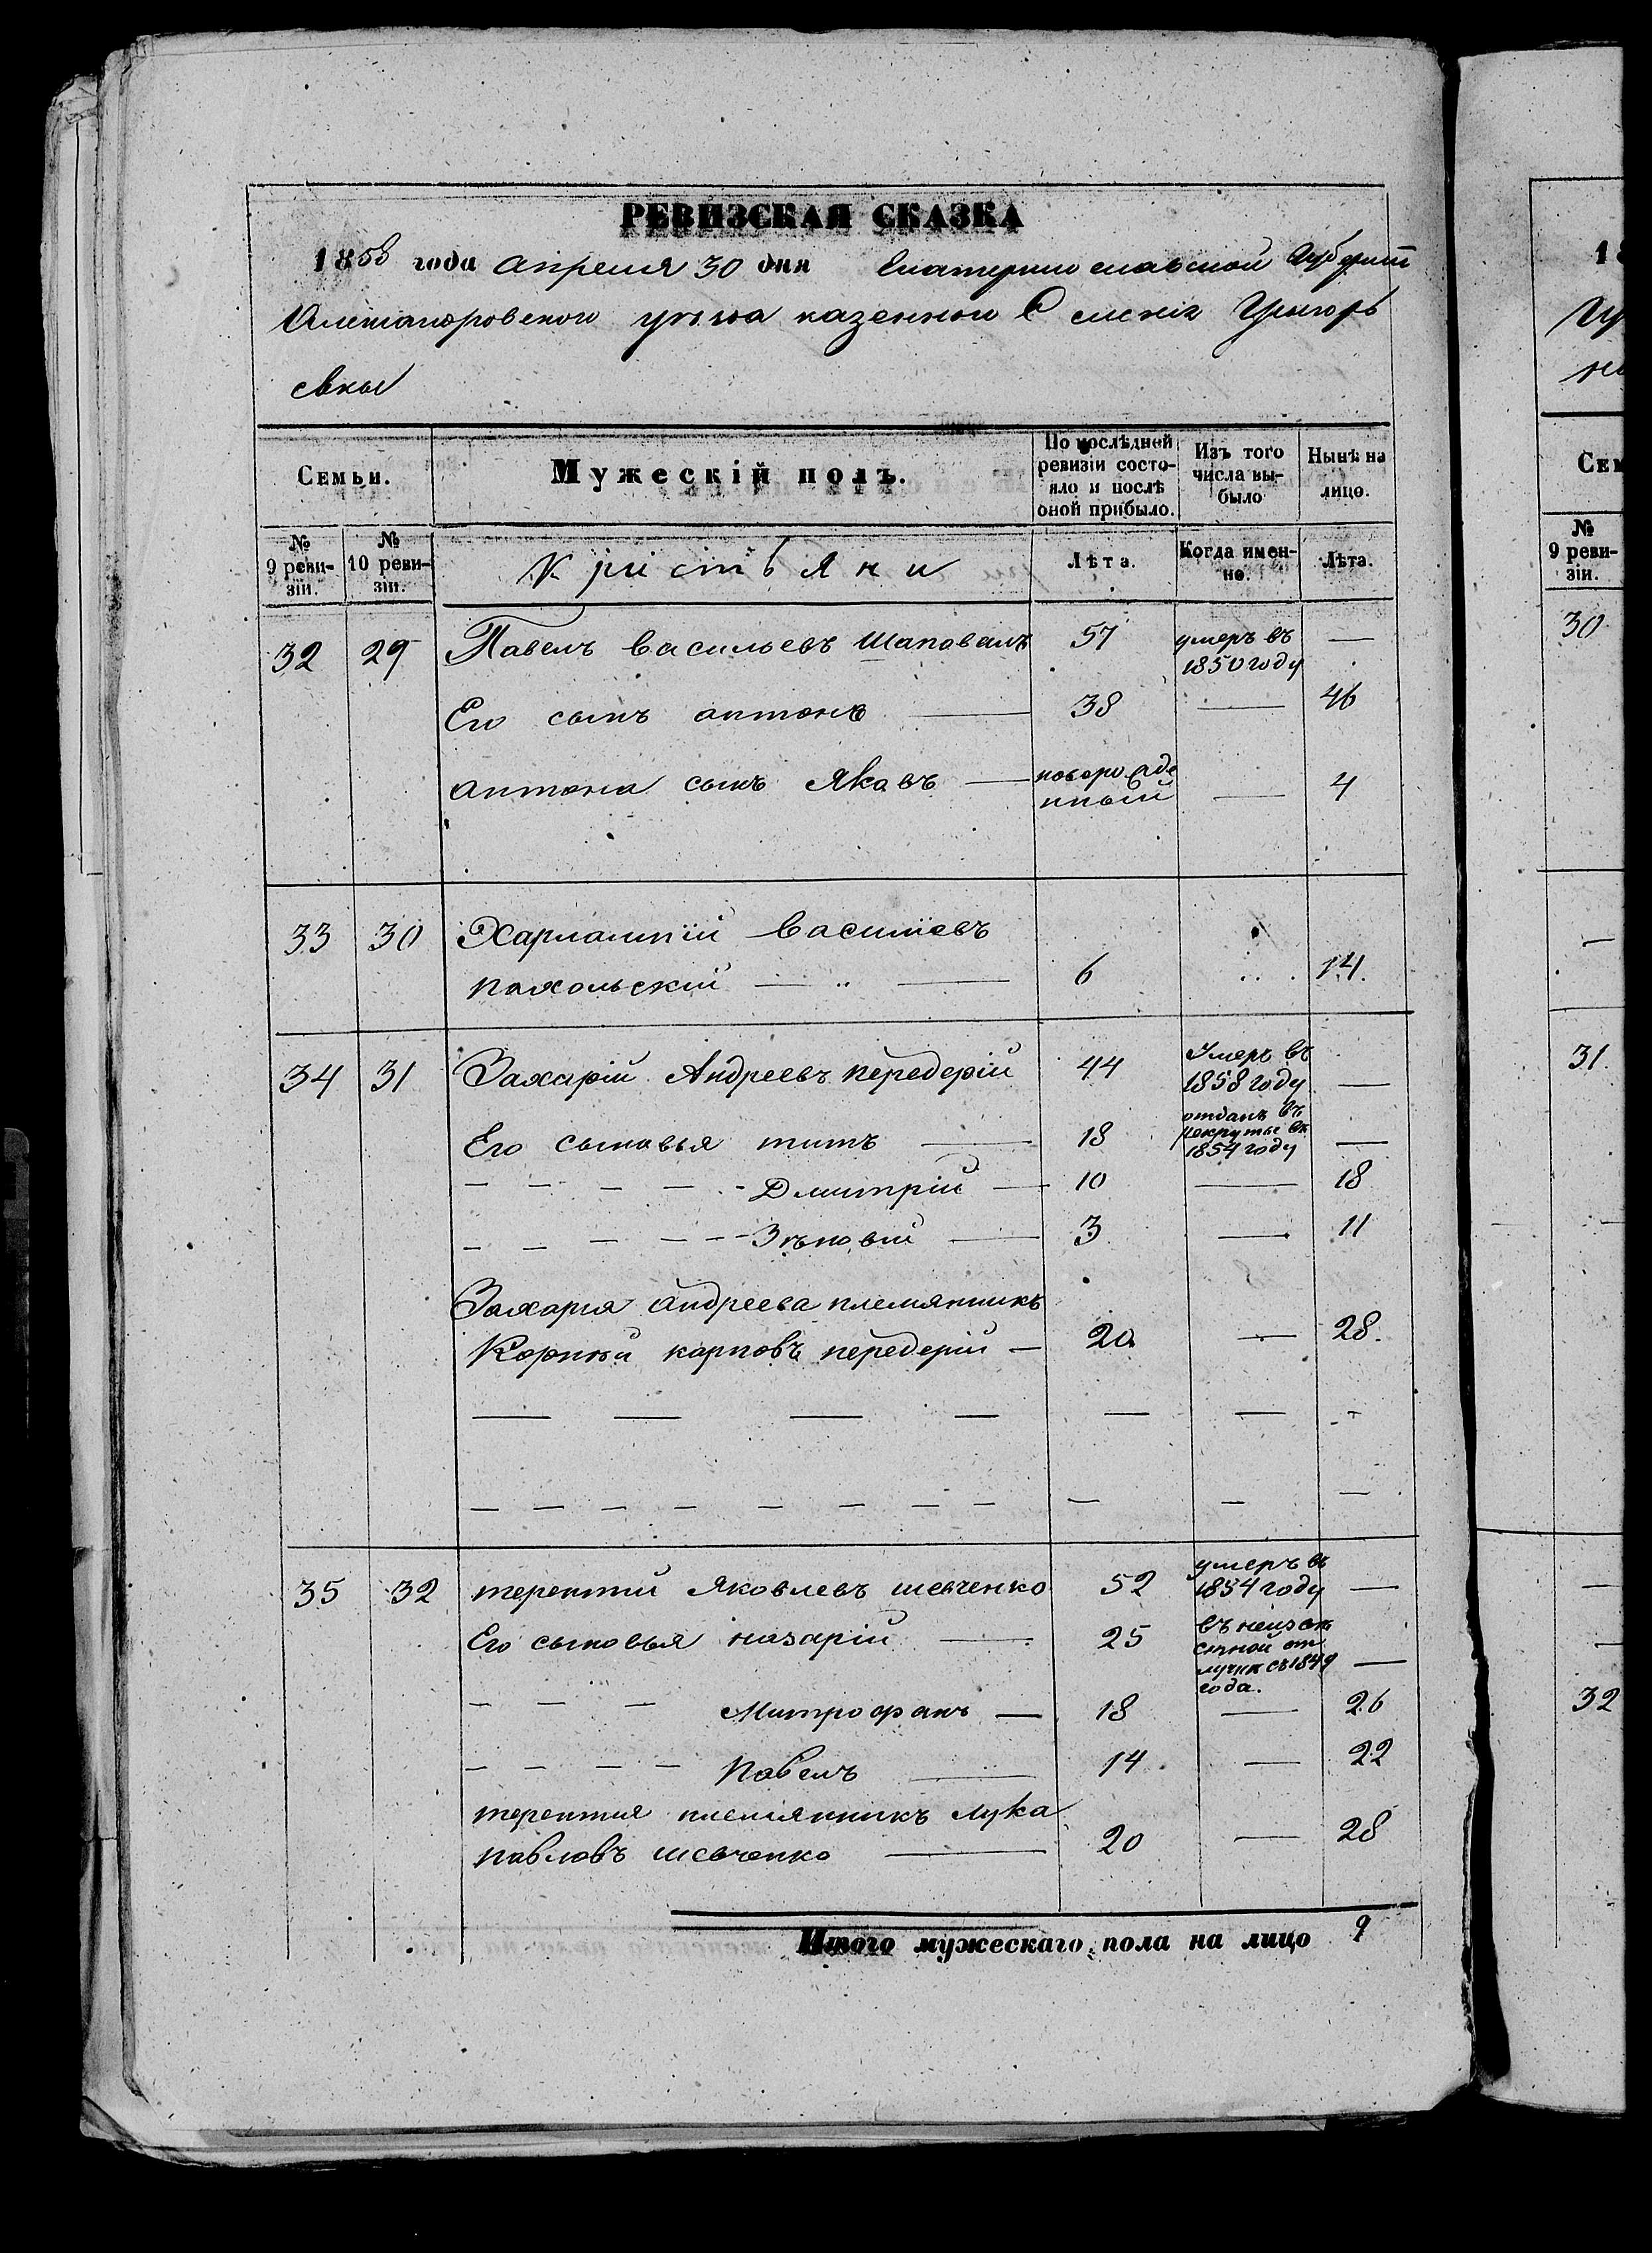 РЕВИЗСКАЯ СКАЗКА
1858 года апреля 30 дня Екатеринославской Губернии
Александровского уезда казенной Селения Григорь
евки
Семьи.
Мужескій полъ.
По послѣдней ревизіи состояло и послѣ оной прибыло.
Изъ того числа выбыло
Нынѣ на лицо.
№ 9 ревизіи.
№ 10 ревизіи.
Крістьяни
Лѣта.
Когда именно.
Лѣта.
32 29 Павелъ Васильевъ Шаповалъ 57 умеръ въ 1850 году —
Его сынъ антонъ — 38 — 46
антона сынъ Яковъ — новорожденный — 4
33 30 Харлампій Василіевъ
пахольскій — „ — 6 14.
34 31 Захарій Андреевъ передерій 44 Умеръ въ 1858 году —
Его сыновья титъ — 18 отданъ въ рекруты въ 1854 году —
— — — — - Дмитрій — 10 — 18
— — — — - Зѣновій — 3 — 11
Захарія андреева племянникъ
Корній карповъ передерій — 20 — 28.
35 32 терентій Яковлевъ шевченко 52 умеръ въ 1854 году —
Его сыновья назарій — 25 въ неизвѣстной отлучке съ 1849 года. —
— — — Митрофанъ — 18 — 26
— — — — Павелъ — 14 — 22
терентия племянникъ лука
павловъ шевченко — 20 — 28
Итого мужескаго пола на лицо 9
18
Сем
№ 9 ревизіи.
30
31.
32